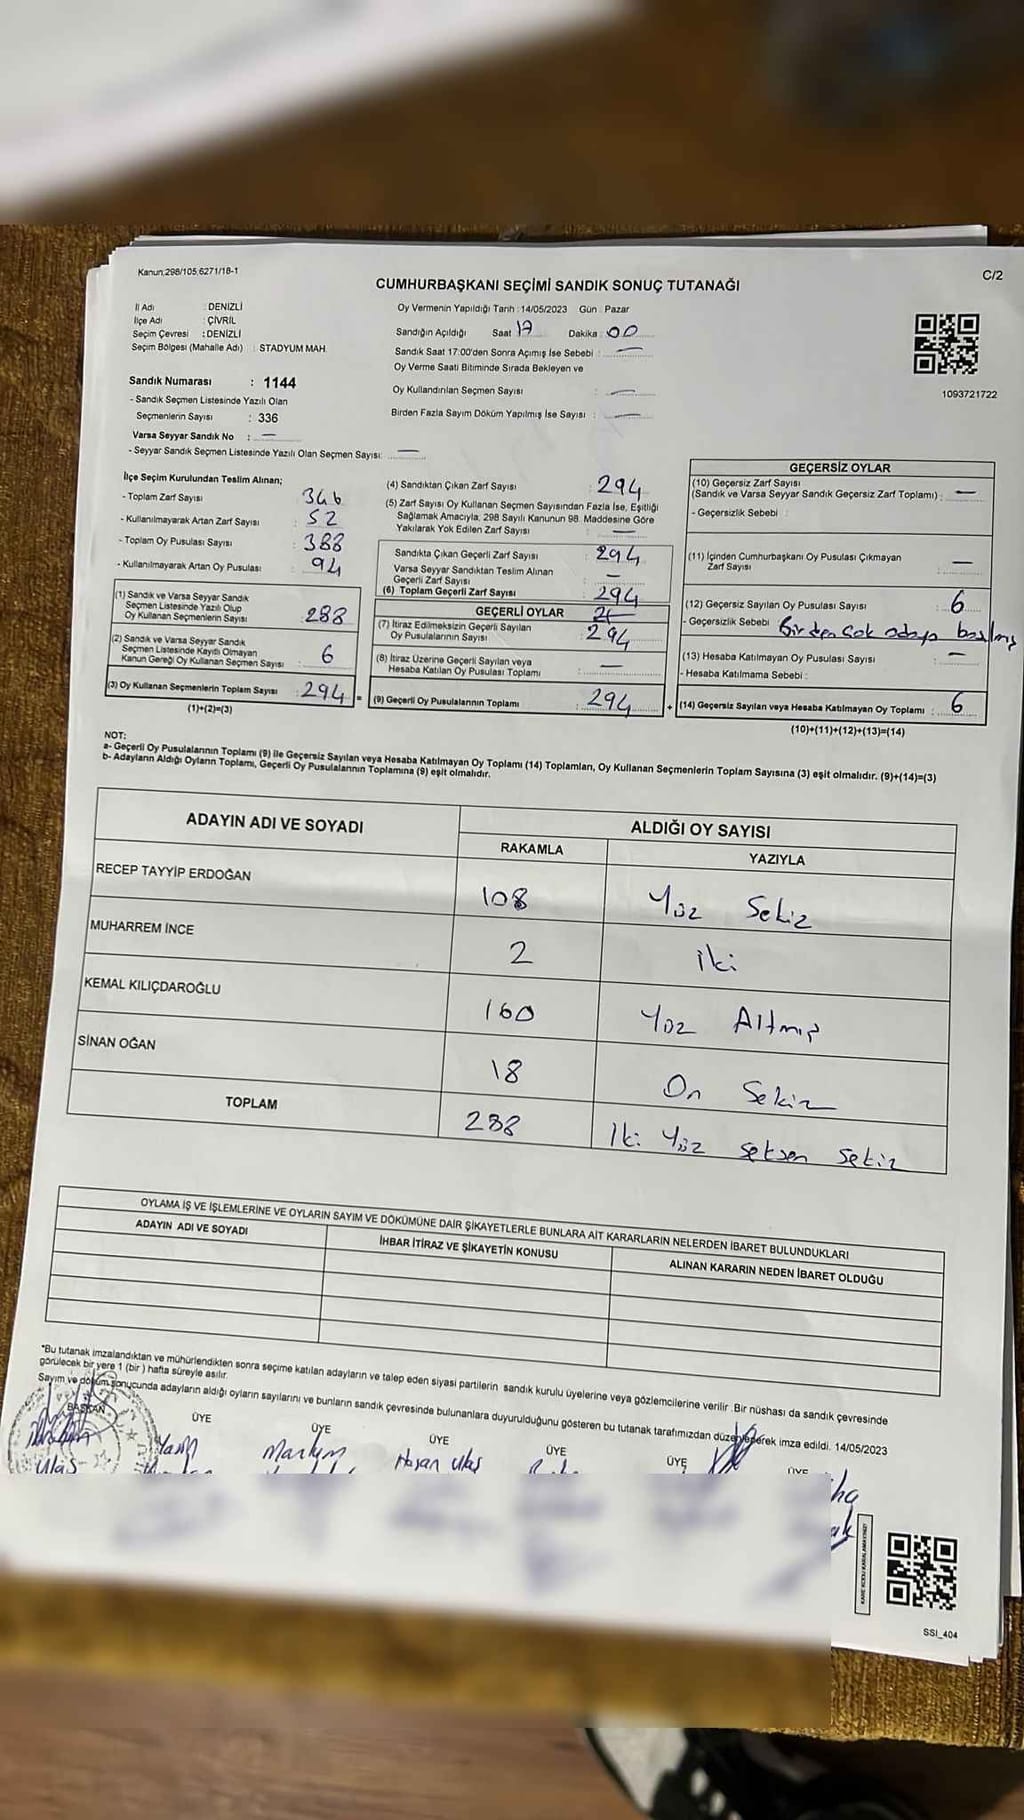 Kanun,298/105,6271/18-1
C/2
CUMHURBAŞKANI SEÇİMİ SANDIK SONUÇ TUTANAĞI
İl Adı : DENİZLİ
İlçe Adı : ÇİVRİL
Seçim Çevresi : DENİZLİ
Seçim Bölgesi (Mahalle Adı) : STADYUM MAH.
Sandık Numarası : 1144
- Sandık Seçmen Listesinde Yazılı Olan
Seçmenlerin Sayısı : 336
Varsa Seyyar Sandık No : —
- Seyyar Sandık Seçmen Listesinde Yazılı Olan Seçmen Sayısı: —
Oy Vermenin Yapıldığı Tarih : 14/05/2023 Gün : Pazar
Sandığın Açıldığı Saat 17 Dakika : 00
Sandık Saat 17:00'den Sonra Açımış İse Sebebi : —
Oy Verme Saati Bitiminde Sırada Bekleyen ve
Oy Kullandırılan Seçmen Sayısı : —
Birden Fazla Sayım Döküm Yapılmış İse Sayısı : —
1093721722
İlçe Seçim Kurulundan Teslim Alınan;
- Toplam Zarf Sayısı : 346
- Kullanılmayarak Artan Zarf Sayısı : 52
- Toplam Oy Pusulası Sayısı : 388
- Kullanılmayarak Artan Oy Pusulası : 94
(1) Sandık ve Varsa Seyyar Sandık
Seçmen Listesinde Yazılı Olup
Oy Kullanan Seçmenlerin Sayısı : 288
(2) Sandık ve Varsa Seyyar Sandık
Seçmen Listesinde Kayıtlı Olmayan
Kanun Gereği Oy Kullanan Seçmen Sayısı : 6
(3) Oy Kullanan Seçmenlerin Toplam Sayısı : 294 =
(1)+(2)=(3)
(4) Sandıktan Çıkan Zarf Sayısı : 294
(5) Zarf Sayısı Oy Kullanan Seçmen Sayısından Fazla İse, Eşitliği
Sağlamak Amacıyla, 298 Sayılı Kanunun 98. Maddesine Göre
Yakılarak Yok Edilen Zarf Sayısı : —
Sandıkta Çıkan Geçerli Zarf Sayısı : 294
Varsa Seyyar Sandıktan Teslim Alınan
Geçerli Zarf Sayısı : —
(6) Toplam Geçerli Zarf Sayısı : 294
GEÇERLİ OYLAR
(7) İtiraz Edilmeksizin Geçerli Sayılan
Oy Pusulalarının Sayısı : 294
(8) İtiraz Üzerine Geçerli Sayılan veya
Hesaba Katılan Oy Pusulası Toplamı : —
(9) Geçerli Oy Pusulalarının Toplamı : 294 +
GEÇERSİZ OYLAR
(10) Geçersiz Zarf Sayısı
(Sandık ve Varsa Seyyar Sandık Geçersiz Zarf Toplamı) : —
- Geçersizlik Sebebi :
(11) İçinden Cumhurbaşkanı Oy Pusulası Çıkmayan
Zarf Sayısı : —
(12) Geçersiz Sayılan Oy Pusulası Sayısı : 6
- Geçersizlik Sebebi Birden çok adaya basılmış
(13) Hesaba Katılmayan Oy Pusulası Sayısı : —
- Hesaba Katılmama Sebebi :
(14) Geçersiz Sayılan veya Hesaba Katılmayan Oy Toplamı : 6
(10)+(11)+(12)+(13)=(14)
NOT:
a- Geçerli Oy Pusulalarının Toplamı (9) ile Geçersiz Sayılan veya Hesaba Katılmayan Oy Toplamı (14) Toplamları, Oy Kullanan Seçmenlerin Toplam Sayısına (3) eşit olmalıdır. (9)+(14)=(3)
b- Adayların Aldığı Oyların Toplamı, Geçerli Oy Pusulalarının Toplamına (9) eşit olmalıdır.
ADAYIN ADI VE SOYADI ALDIĞI OY SAYISI
RAKAMLA YAZIYLA
RECEP TAYYİP ERDOĞAN 108 Yüz Sekiz
MUHARREM İNCE 2 iki
KEMAL KILIÇDAROĞLU 160 Yüz Altmış
SİNAN OĞAN 18 On Sekiz
TOPLAM 288 İki Yüz Seksen Sekiz
OYLAMA İŞ VE İŞLEMLERİNE VE OYLARIN SAYIM VE DÖKÜMÜNE DAİR ŞİKAYETLERLE BUNLARA AİT KARARLARIN NELERDEN İBARET BULUNDUKLARI
ADAYIN ADI VE SOYADI İHBAR İTİRAZ VE ŞİKAYETİN KONUSU ALINAN KARARIN NEDEN İBARET OLDUĞU
*Bu tutanak imzalandıktan ve mühürlendikten sonra seçime katılan adayların ve talep eden siyasi partilerin sandık kurulu üyelerine veya gözlemcilerine verilir. Bir nüshası da sandık çevresinde
görülecek bir yere 1 (bir) hafta süreyle asılır.
Sayım ve döküm sonucunda adayların aldığı oyların sayılarını ve bunların sandık çevresinde bulunanlara duyurulduğunu gösteren bu tutanak tarafımızdan düzenlenerek imza edildi. 14/05/2023
BAŞKAN ÜYE ÜYE ÜYE ÜYE ÜYE ÜYE
Ulaş Hasan Ulaş
KARE KODU KARALAMAYINIZ!
SSI_404